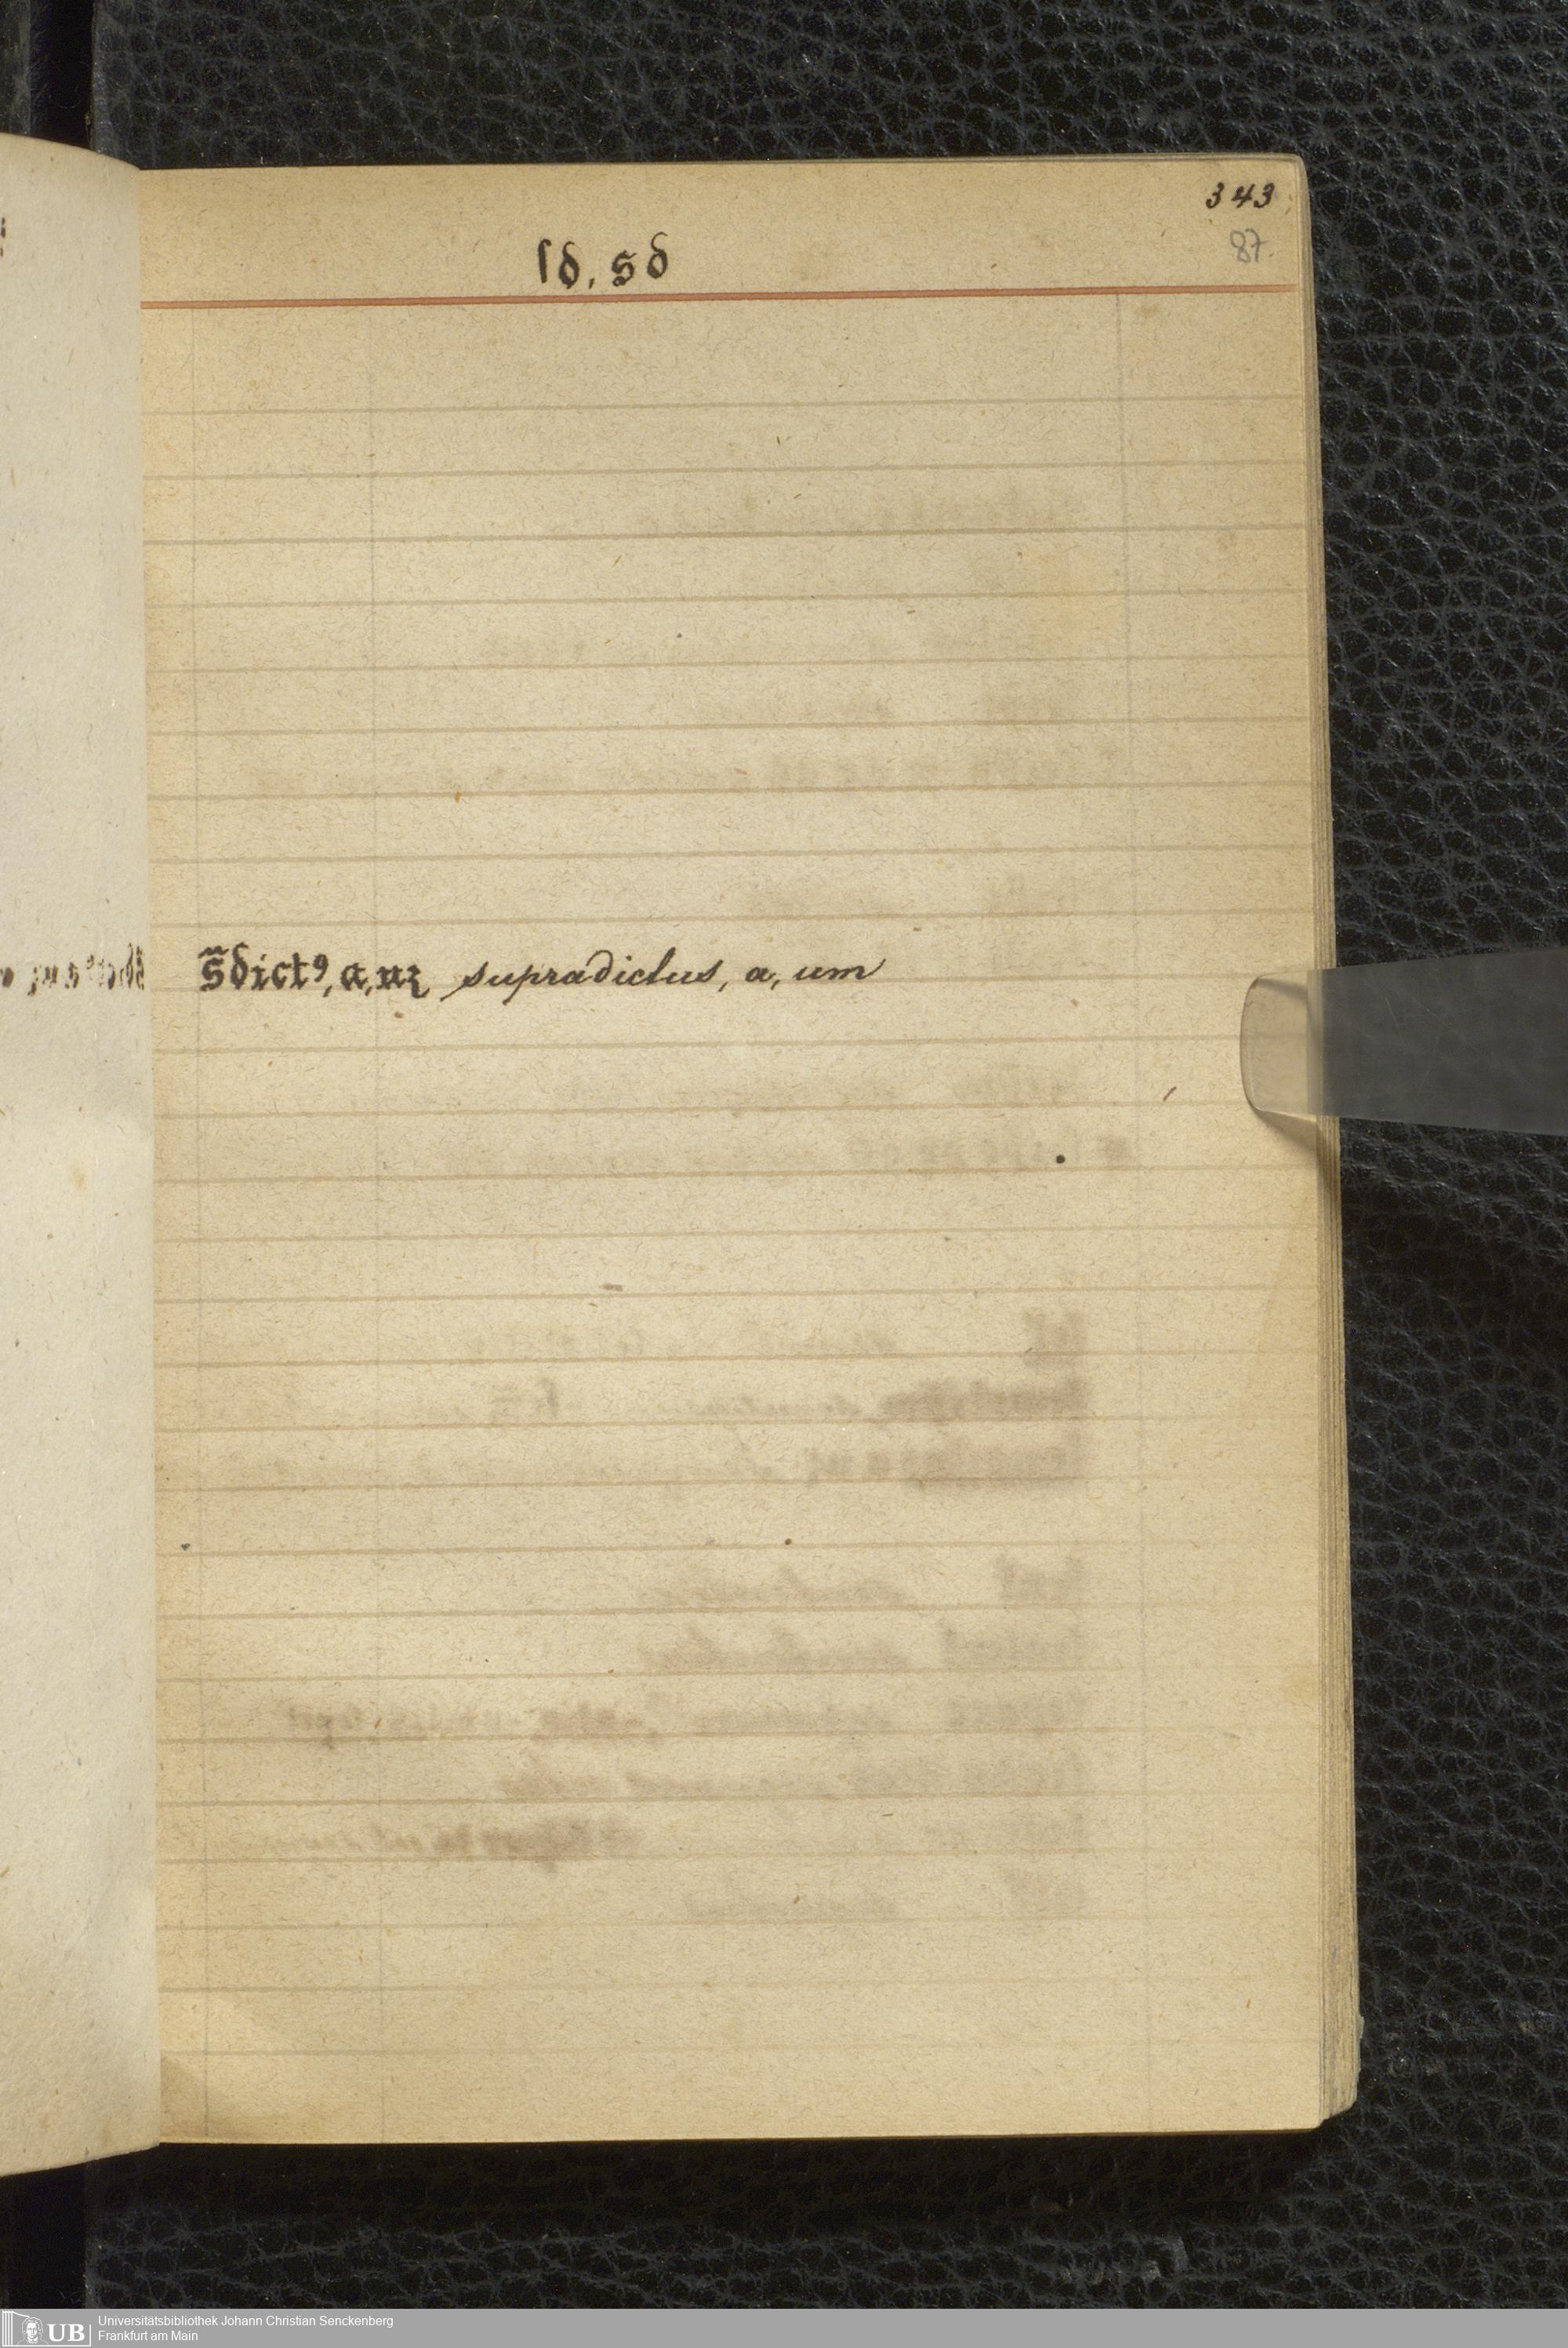 343
87.
ſδ, sδ
s̃δictꝰ, a, uꝫ supradictus, a, um
UB
Universitätsbibliothek Johann Christian Senckenberg
Frankfurt am Main